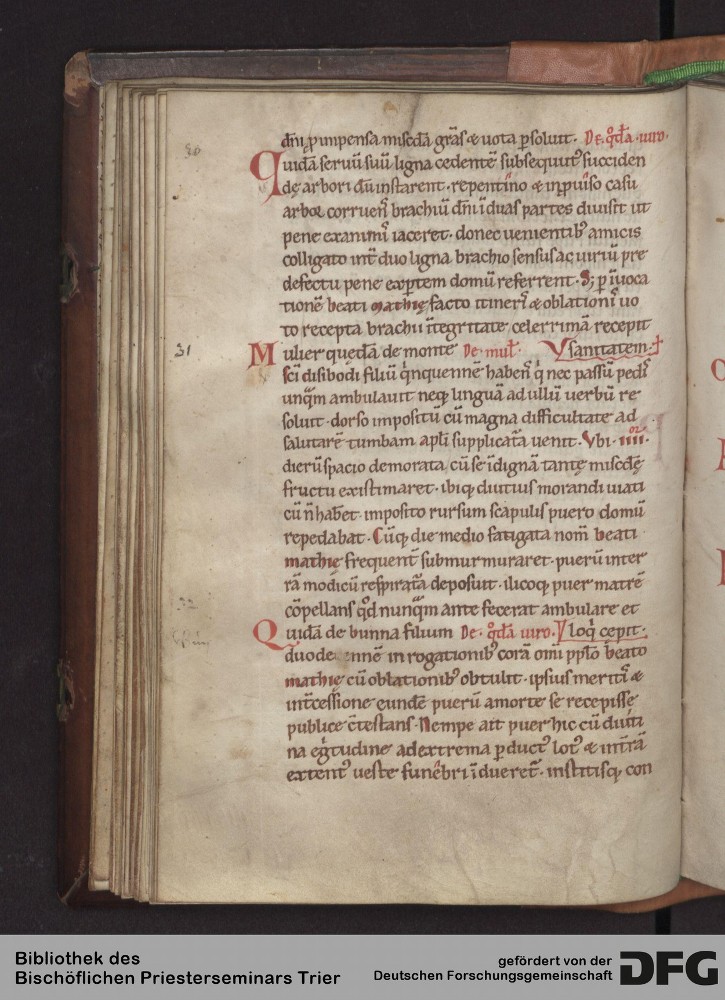 30
dñi ꝓ impensa misc̄dia gr̄as ⁊ uota ꝑsoluit. De qͦda uiro.
Quidā seruū suū ligna cedentē subsequut᷑ succiden
dę arbori dū instarent. repentino ⁊ inprouiso casu
arbor corruens brachiū dn̄i ī duas partes diuisit ut
pene exanimis iaceret. donec uenientib; amicis
colligato int̄ duo ligna brachio sensus ac uiriū pre
defectu pene exꝑtem domū referrent. S; ꝑ īuoca
tionē beati mathię facto itineris ⁊ oblationis uo
to recepta brachii ītegritate celerrimā recepit
31
Mulier quędā de monte De mul̄. sanitatem.
sc̄i disibodi filiū qͥnquennē habens qͥ nec passū pedis
unqͣm ambulauit neq; linguā ad ullū uerbū re
soluit. dorso impositū cū magna difficultate ad
salutarē tumbam apl̄i supplicat᷑a uenit. Vbi. iiiior.
dierū spacio demorata cū se īdignā tantę misc̄dię
fructu existimaret. ibiq; diutius morandi uiati
cū n̄ haberet. imposito rursum scapulis puero domū
repedabat. Cūq; die medio fatigata nom̄ beati
mathię frequent᷑ submurmuraret. puerū inter
rā modicū respirat᷑a deposuit. ilicoq; puer matrē
cōpellans qͦd nunqͣm ante fecerat ambulare et
32
Quidā de bunna filium De qͦdā uiro. loqͥ cepit.
duodennē in rogationib; corā om̄i pplo beato
mathię cū oblationib; obtulit. ipsius meritis ⁊
int̄cessione eundē puerū a morte se recepisse
publice ꝯtestans. Nempe ait puer hic cū diuti
na egͥtudine ad extrema ꝑduct᷒ lot᷒ ⁊ in t̄rā
extent᷒ ueste funebri īdueret᷑. institisq; con
Bibliothek des
Bischöflichen Priesterseminars Trier
gefördert von der
Deutschen Forschungsgemeinschaft
DFG